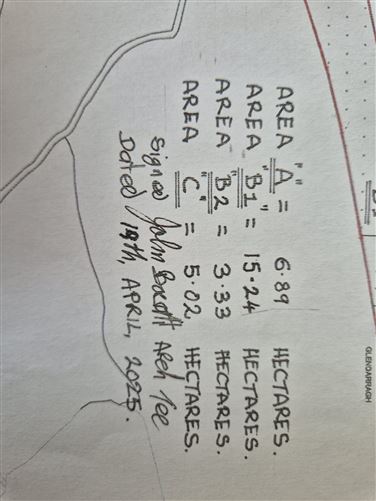 AREA "A" = 6.89 HECTARES.
AREA "B1" = 15.24 HECTARES.
AREA "B2" = 3.33 HECTARES.
AREA "C" = 5.02 HECTARES.
Signed John Arch Tec
Dated 19th, APRIL, 2025.
GLENGARRAGH